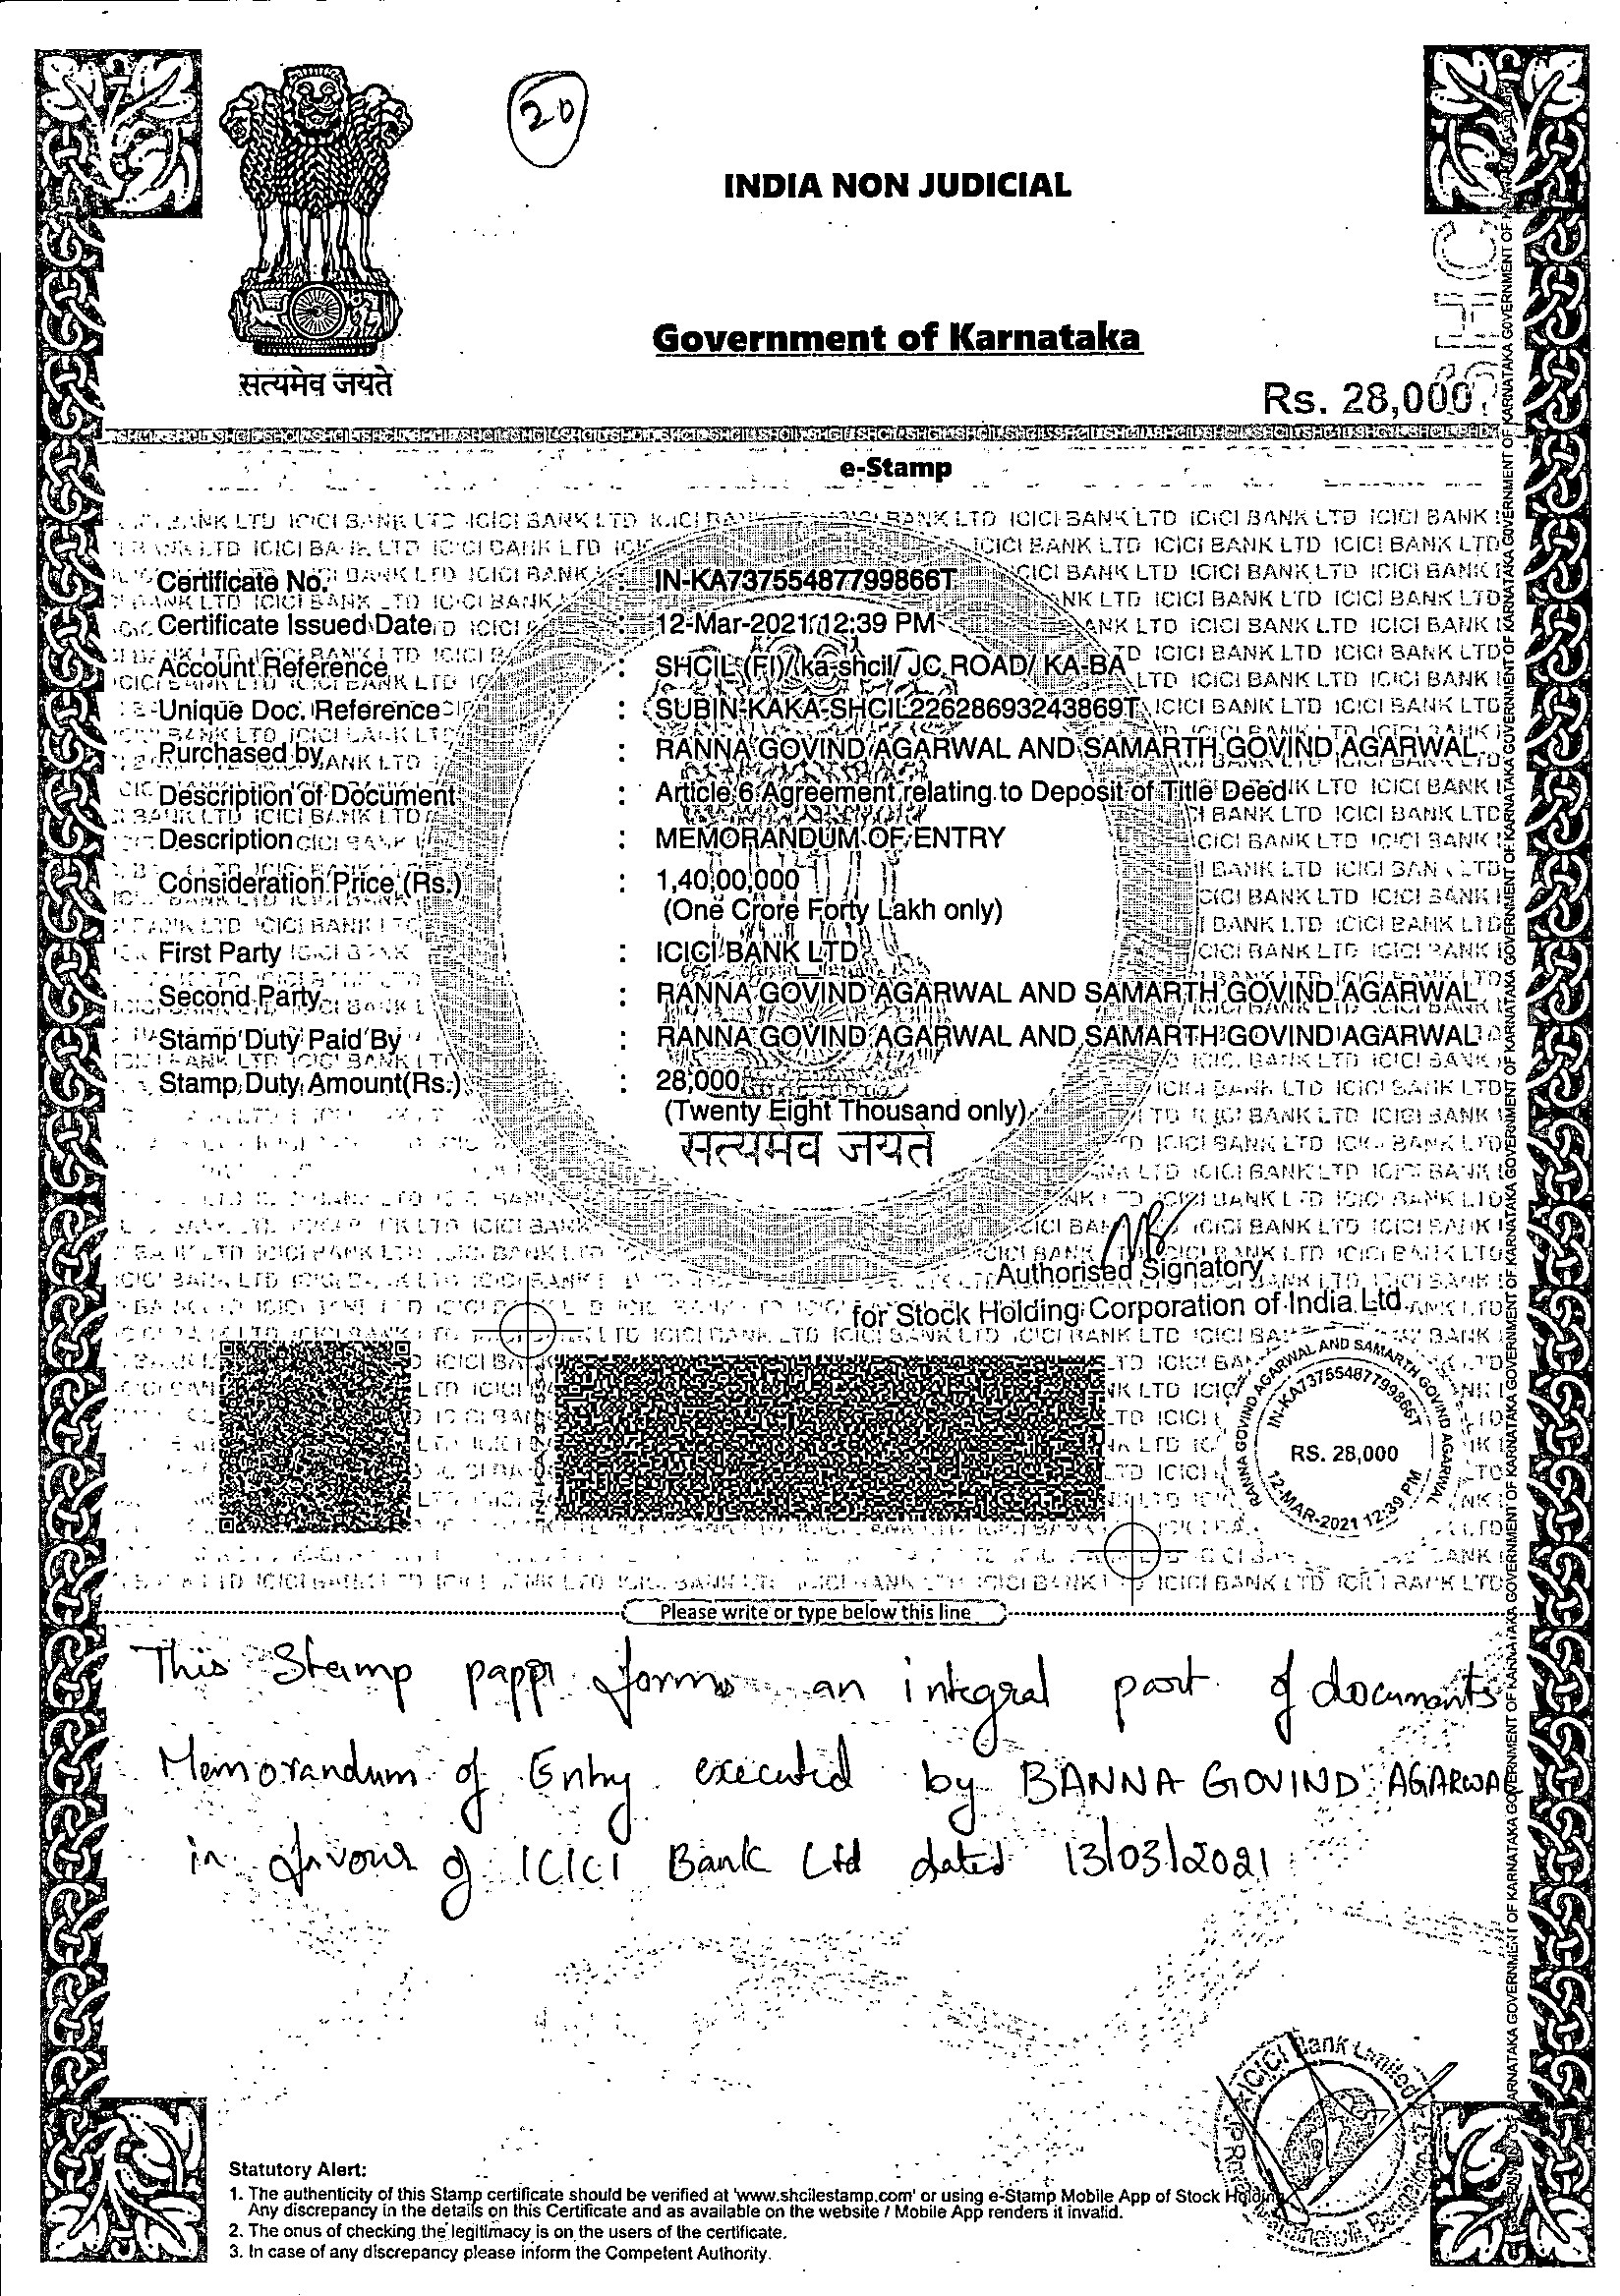 20
INDIA NON JUDICIAL
Government of Karnataka
सत्यमेव जयते
Rs. 28,000
SHC
e-Stamp
Certificate No. : IN-KA73755487799866T
Certificate Issued Date : 12-Mar-2021 12:39 PM
Account Reference : SHCIL (FI)/ ka-shcil/ JC ROAD/ KA-BA
Unique Doc. Reference : SUBIN-KAKA-SHCIL22628693243869T
Purchased by : RANNA GOVIND AGARWAL AND SAMARTH GOVIND AGARWAL
Description of Document : Article 6 Agreement relating to Deposit of Title Deed
Description : MEMORANDUM OF ENTRY
Consideration Price (Rs.) : 1,40,00,000
(One Crore Forty Lakh only)
First Party : ICICI BANK LTD
Second Party : RANNA GOVIND AGARWAL AND SAMARTH GOVIND AGARWAL
Stamp Duty Paid By : RANNA GOVIND AGARWAL AND SAMARTH GOVIND AGARWAL
Stamp Duty Amount(Rs.) : 28,000
(Twenty Eight Thousand only)
सत्यमेव जयते
Authorised Signatory
for Stock Holding Corporation of India Ltd
RANNA GOVIND AGARWAL AND SAMARTH GOVIND AGARWAL
IN-KA73755487799866T
RS. 28,000
12-MAR-2021 12:39 PM
Please write or type below this line
This Stamp forms an integral part of documents
Memorandum of Entry executed by BANNA GOVIND AGARWAL
in favour of ICICI Bank Ltd dated 13/03/2021
ICICI Bank Limited
Statutory Alert:
1. The authenticity of this Stamp certificate should be verified at 'www.shcilestamp.com' or using e-Stamp Mobile App of Stock Holding
Any discrepancy in the details on this Certificate and as available on the website / Mobile App renders it invalid.
2. The onus of checking the legitimacy is on the users of the certificate.
3. In case of any discrepancy please inform the Competent Authority.